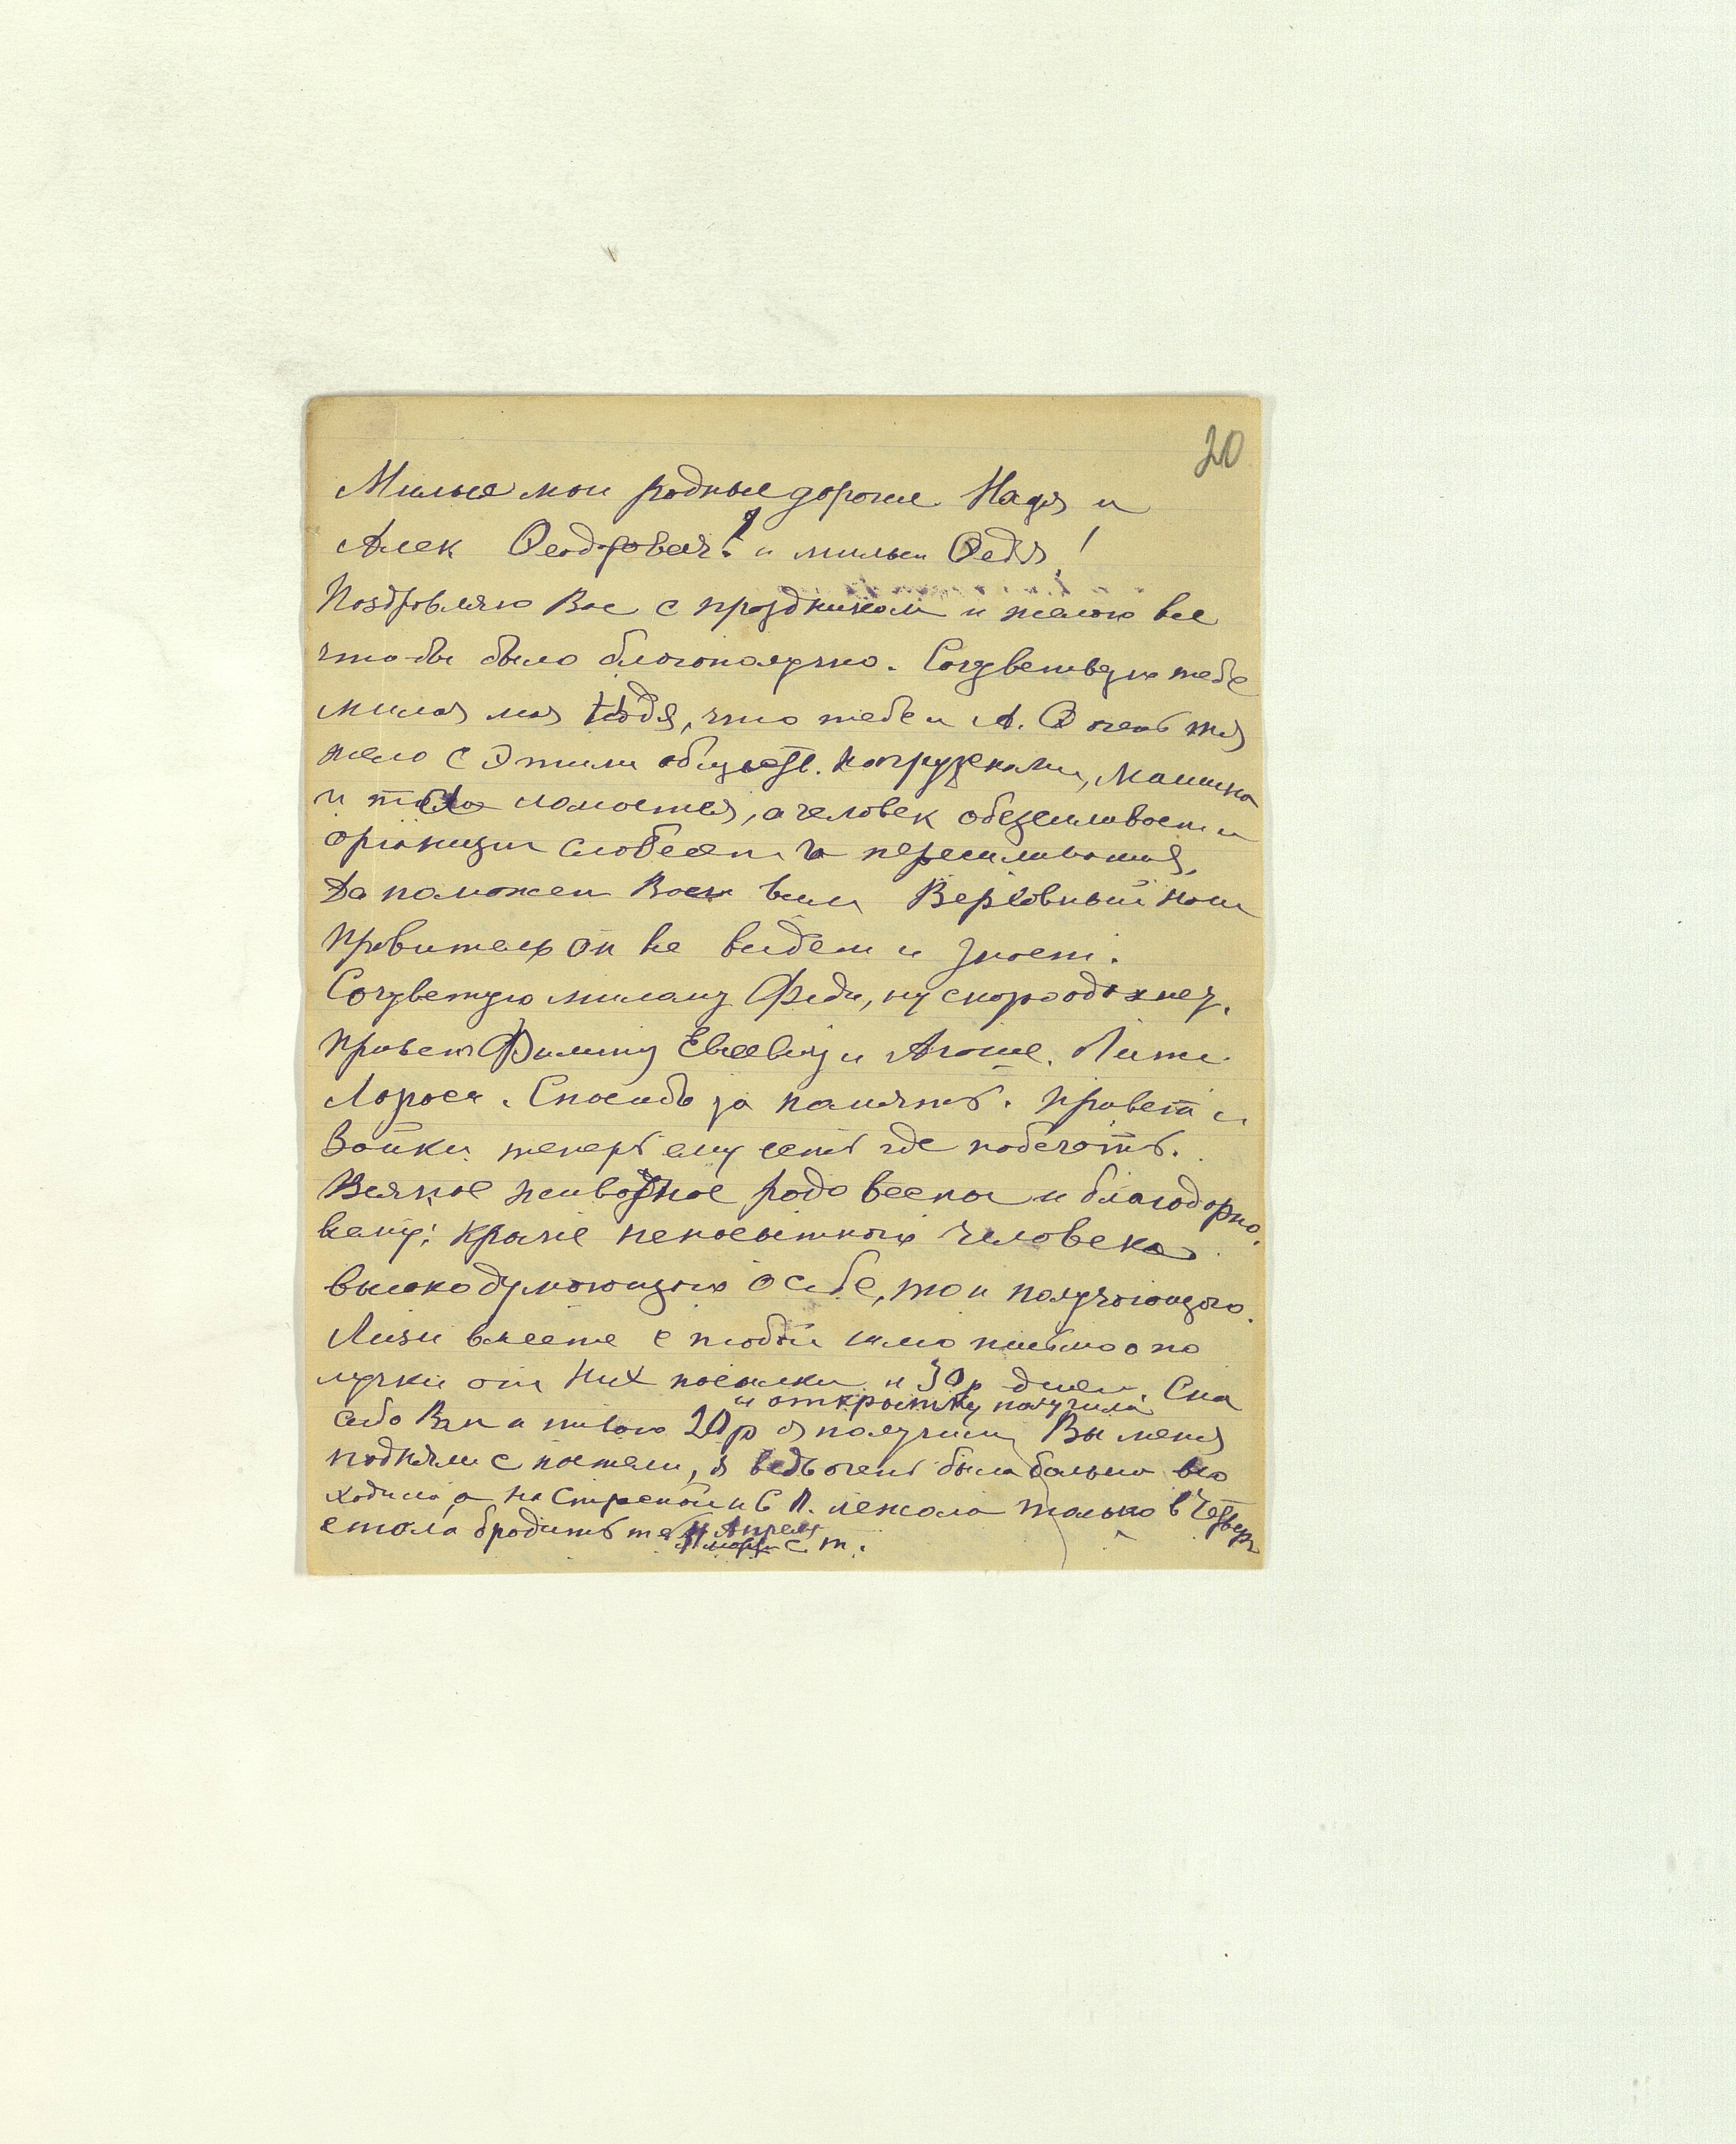 20
Милые мои родные дорогие Надя и
Алек Феодорович! и милый Федя!
Поздравляю Вас с праздником и желаю все
что-бы было благополучно. Сочувствую тебе
милая моя Надя, что тебе и А. Ф очень тя
жело с этими обществ. нагрузками, машина
и та ломается, а человек обезсиливает и
организм слабеет
Да поможет Вам всем Верховный наш
Правитель он все видит и знает.
Сочуветую милому Феди, ну скоро одохнеш.
Привет Филипу Евсевичу и Агаше. Лите
Лороса. Спасибо за память. Привет и
Зайки теперь ему есть где побегать.
Всякое животное радо весны и благодарно.
кроме ненасытного человека
высокодумающего о себе, то и получающего.
Лизи вместе с тобой шло письмо о по
лучки от них посылки и 30р денег. Спа
и открытку получила
сибо Вам и твою 20р я получила Вы меня
подняли с постели, я ведь очень была больна все
ходила а на Страстной н б П. лежала только в Четверг
стала бродить 4 Апреля с. т.